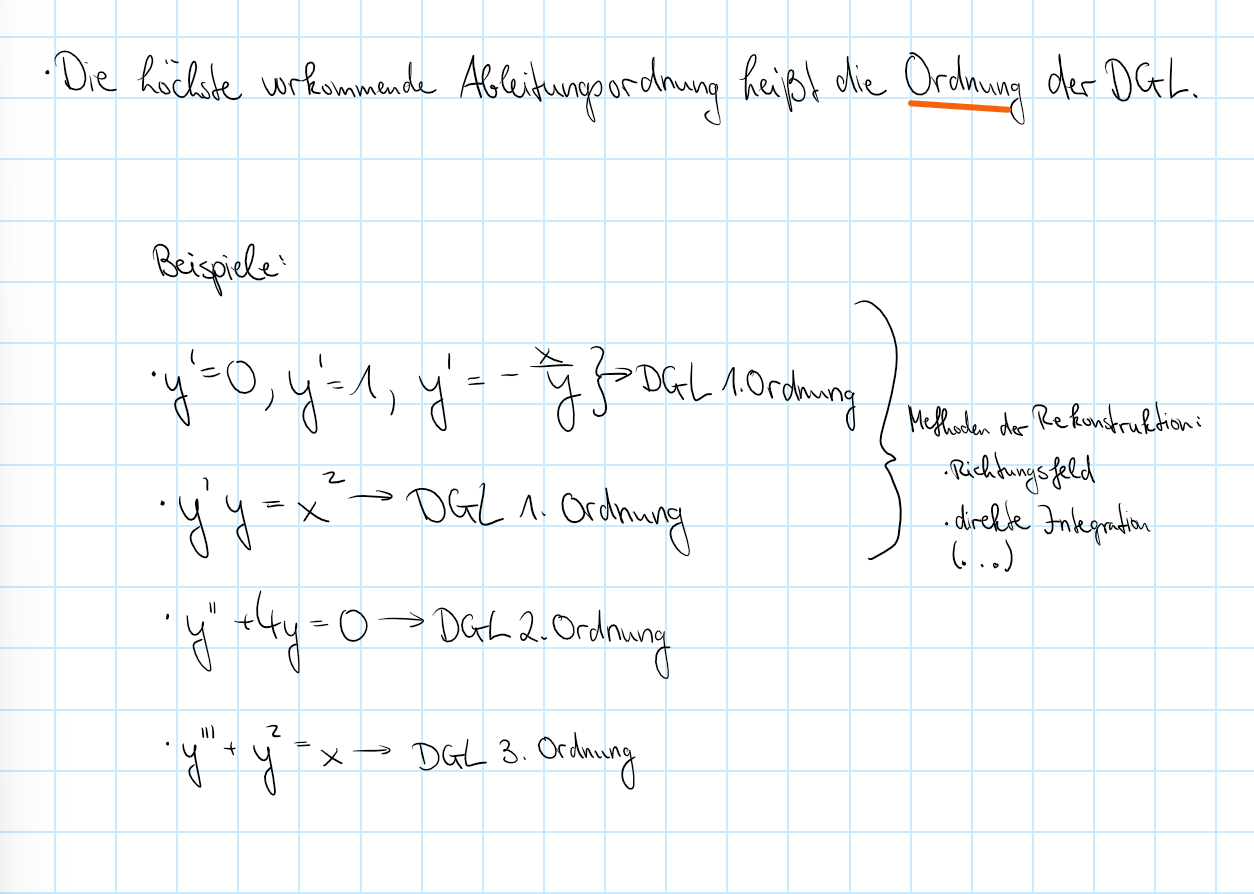 · Die höchste vorkommende Ableitungsordnung heißt die Ordnung der DGL.
Beispiele:
· y' = 0, y' = 1, y' = - x/y } → DGL 1. Ordnung
· y' y = x² → DGL 1. Ordnung
· y'' + 4y = 0 → DGL 2. Ordnung
· y''' + y² = x → DGL 3. Ordnung
} Methoden der Rekonstruktion:
· Richtungsfeld
· direkte Integration
(...)